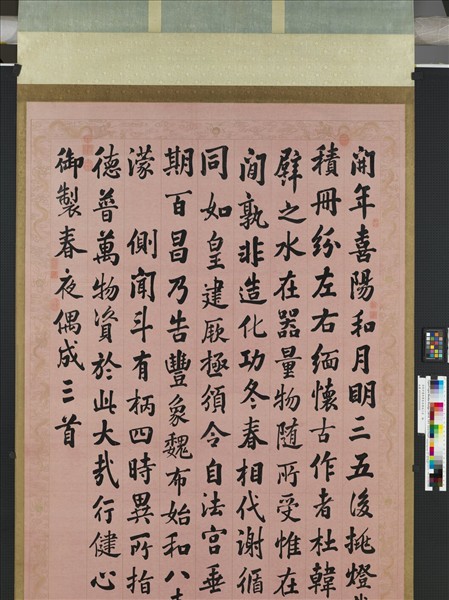 開年喜陽和月明三五後挑燈
積冊紛左右緬懷古作者杜韓
譬之水在器量物隨所受惟在
間孰非造化功冬春相代謝循
同如皇建厥極須令自法宮垂
期百昌乃告豐象魏布始和八
濛 側聞斗有柄四時異所指
德普萬物資於此大哉行健心
御製春夜偶成三首